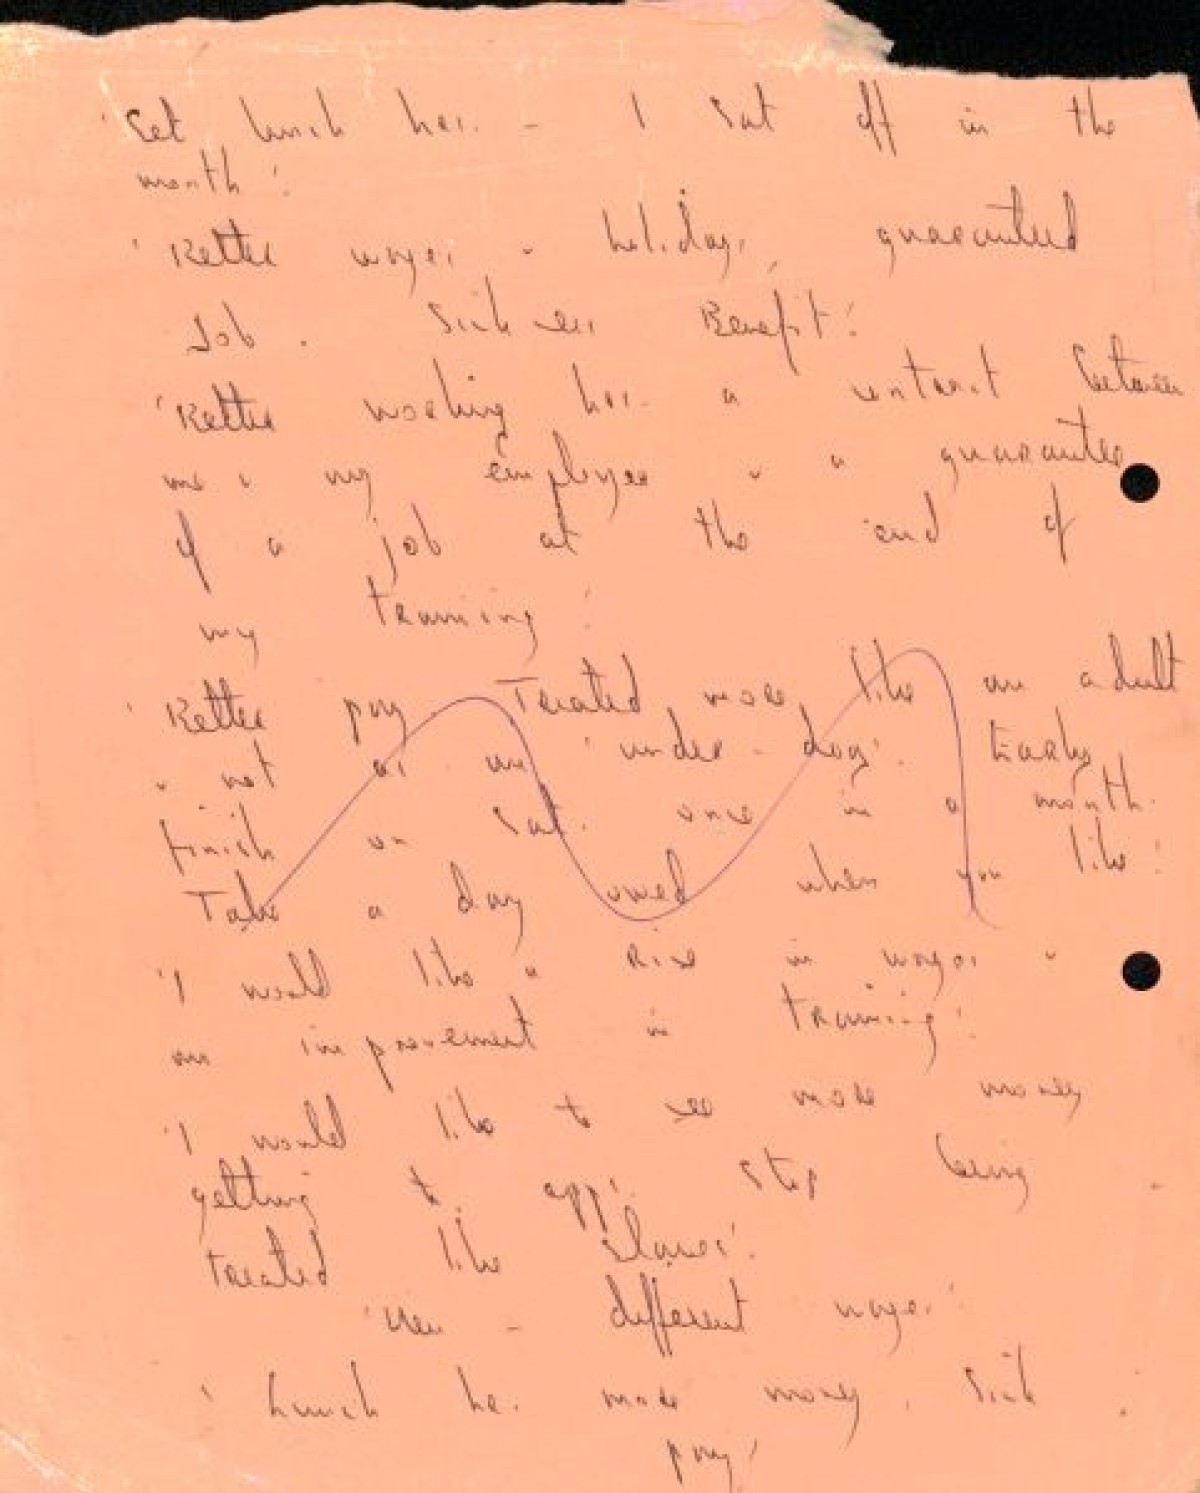 'Set lunch hrs. - 1 Sat off in the
month'.
'Better wages & holidays, guaranteed
Job. Sickness Benefit'.
'Better working hrs. a contract between
me & my employer & a guarantee
of a job at the end of
my training'.
'Better pay. Treated more like an adult
& not as an 'under-dog'. Early
finish on Sat. once in a month.
Take a day owed when you like'.
'I would like a rise in wages &
an improvement in training'.
'I would like to see more money
getting to app's. Stop being
treated like slaves'.
'Yes - different wages'.
'Lunch hr. more money, Sick
pay'